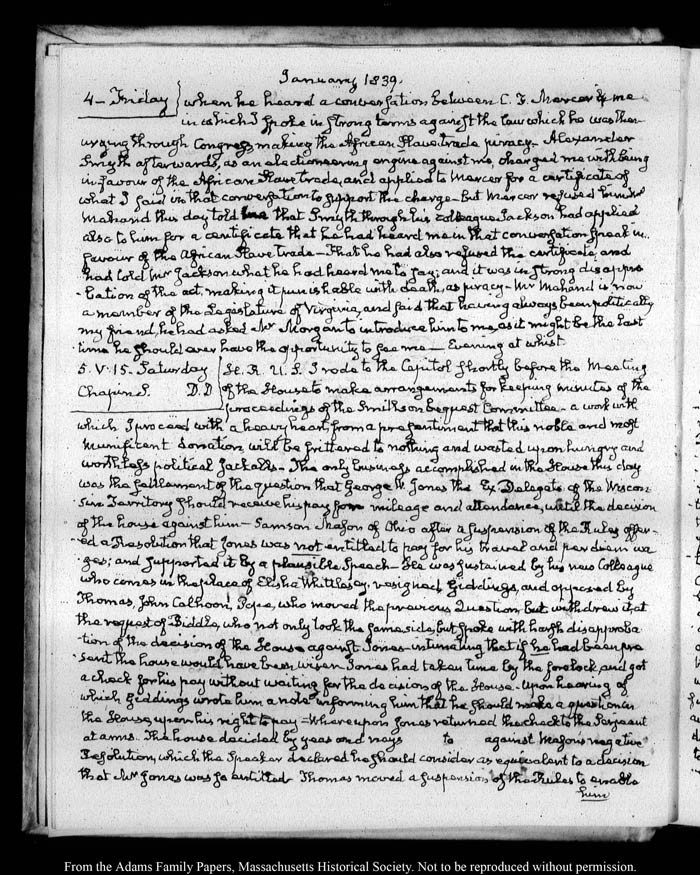 January 1839.
4 - Friday } when he heard a conversation between C. F. Mercer & me
in which I spoke in strong terms against the law which he was then
urging through Congress, making the African Slave trade piracy - Alexander
Smyth afterwards, as an electioneering engine against me, charged me with being
in favour of the African Slave trade, and applied to Mercer for a certificate of
what I said in that conversation to support the charge - But Mercer refused him. Mr
Mahand this day told me that Smyth through his colleague Jackson had applied
also to him for a certificate that he had heard me in that conversation speak in
favour of the African Slave Trade - That he had also refused the certificate, and
had told Mr Jackson what he had heard me to say; and it was in strong disappro-
-bation of the act, making it punishable with death, as piracy - Mr Mahand is now
a member of the Legislature of Virginia, and said that having always been politically
my friend, he had asked Mr Morgan to introduce him to me, as it might be the last
time he should ever have the opportunity to see me - Evening at whist
5. V:15. Saturday { H. R. U. S. I rode to the Capitol shortly before the Meeting
Chapin S. D.D { of the House to make arrangements for keeping minutes of the
proceedings of the Smithson bequest Committee - a work with
which I proceed with a heavy heart, from a presentiment that this noble and most
munificent donation, will be frittered to nothing and wasted upon hungry and
worthless political jackalls - The only business accomplished in the House this day
was the settlement of the question that George W. Jones the Ex-Delegate of the Wiscon-
-sin Territory should receive his pay for mileage and attendance, until the decision
of the house against him - Samson Mason of Ohio after a suspension of the Rules offer-
-ed a Resolution that Jones was not entitled to pay for his travel and per diem wa-
-ges; and supported it by a plausible Speech - He was sustained by his new Colleague
who comes in the place of Elisha Whittlesey, resigned, Giddings, and opposed by
Thomas, John Calhoon, Pope, who moved the previous Question, but withdrew it at
the request of Biddle, who not only took the same side, but spoke with harsh disapproba-
-tion of the decision of the House against Jones - intimating that if he had been pre-
sent the house would have been wiser. Jones had taken time by the forelock, and got
a check for his pay without waiting for the decision of the House. Upon hearing of
which Giddings wrote him a note informing him that he should make a question in
the House, upon his right to pay - Whereupon Jones returned the check to the Serjeant
at arms. The house decided by yeas and nays to against Mason's negative
Resolution, which the Speaker declared he should consider as equivalent to a decision
that Mr Jones was so entitled. Thomas moved a suspension of the Rules to enable
him
From the Adams Family Papers, Massachusetts Historical Society. Not to be reproduced without permission.